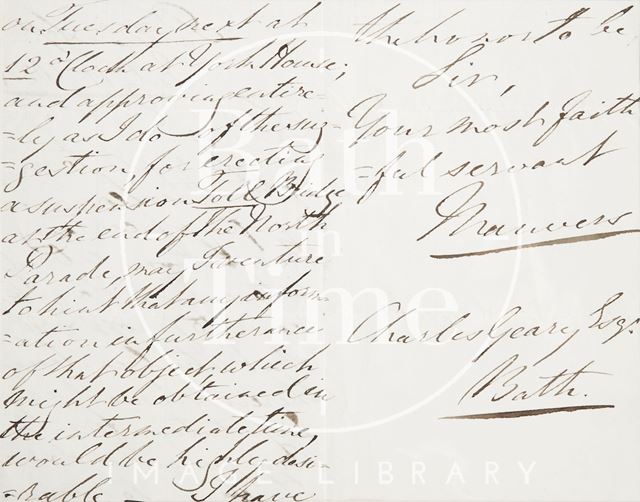 on Tuesday next at
12 o'Clock at York House;
and approving entire=
=ly as I do of the sug-
=gestion, for erecting
a suspension Toll Bridge
at the end of the North
Parade, may I venture
to hint that any inform
=ation in furtherance
of that object which
might be obtained in
the intermediate time,
would be highly desi-
=rable — I have
the honor to be,
Sir,
Your most faith
=ful servant
Manvers
Charles Geary Esqr.
Bath.
Bath
in
Time
IMAGE LIBRARY